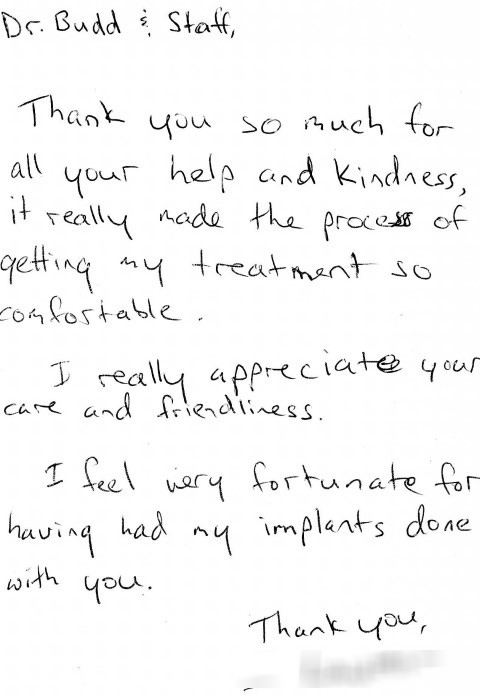 Dr. Budd & Staff,
Thank you so much for
all your help and kindness,
it really made the process of
getting my treatment so
comfortable.
I really appreciate your
care and friendliness.
I feel very fortunate for
having had my implants done
with you.
Thank you,